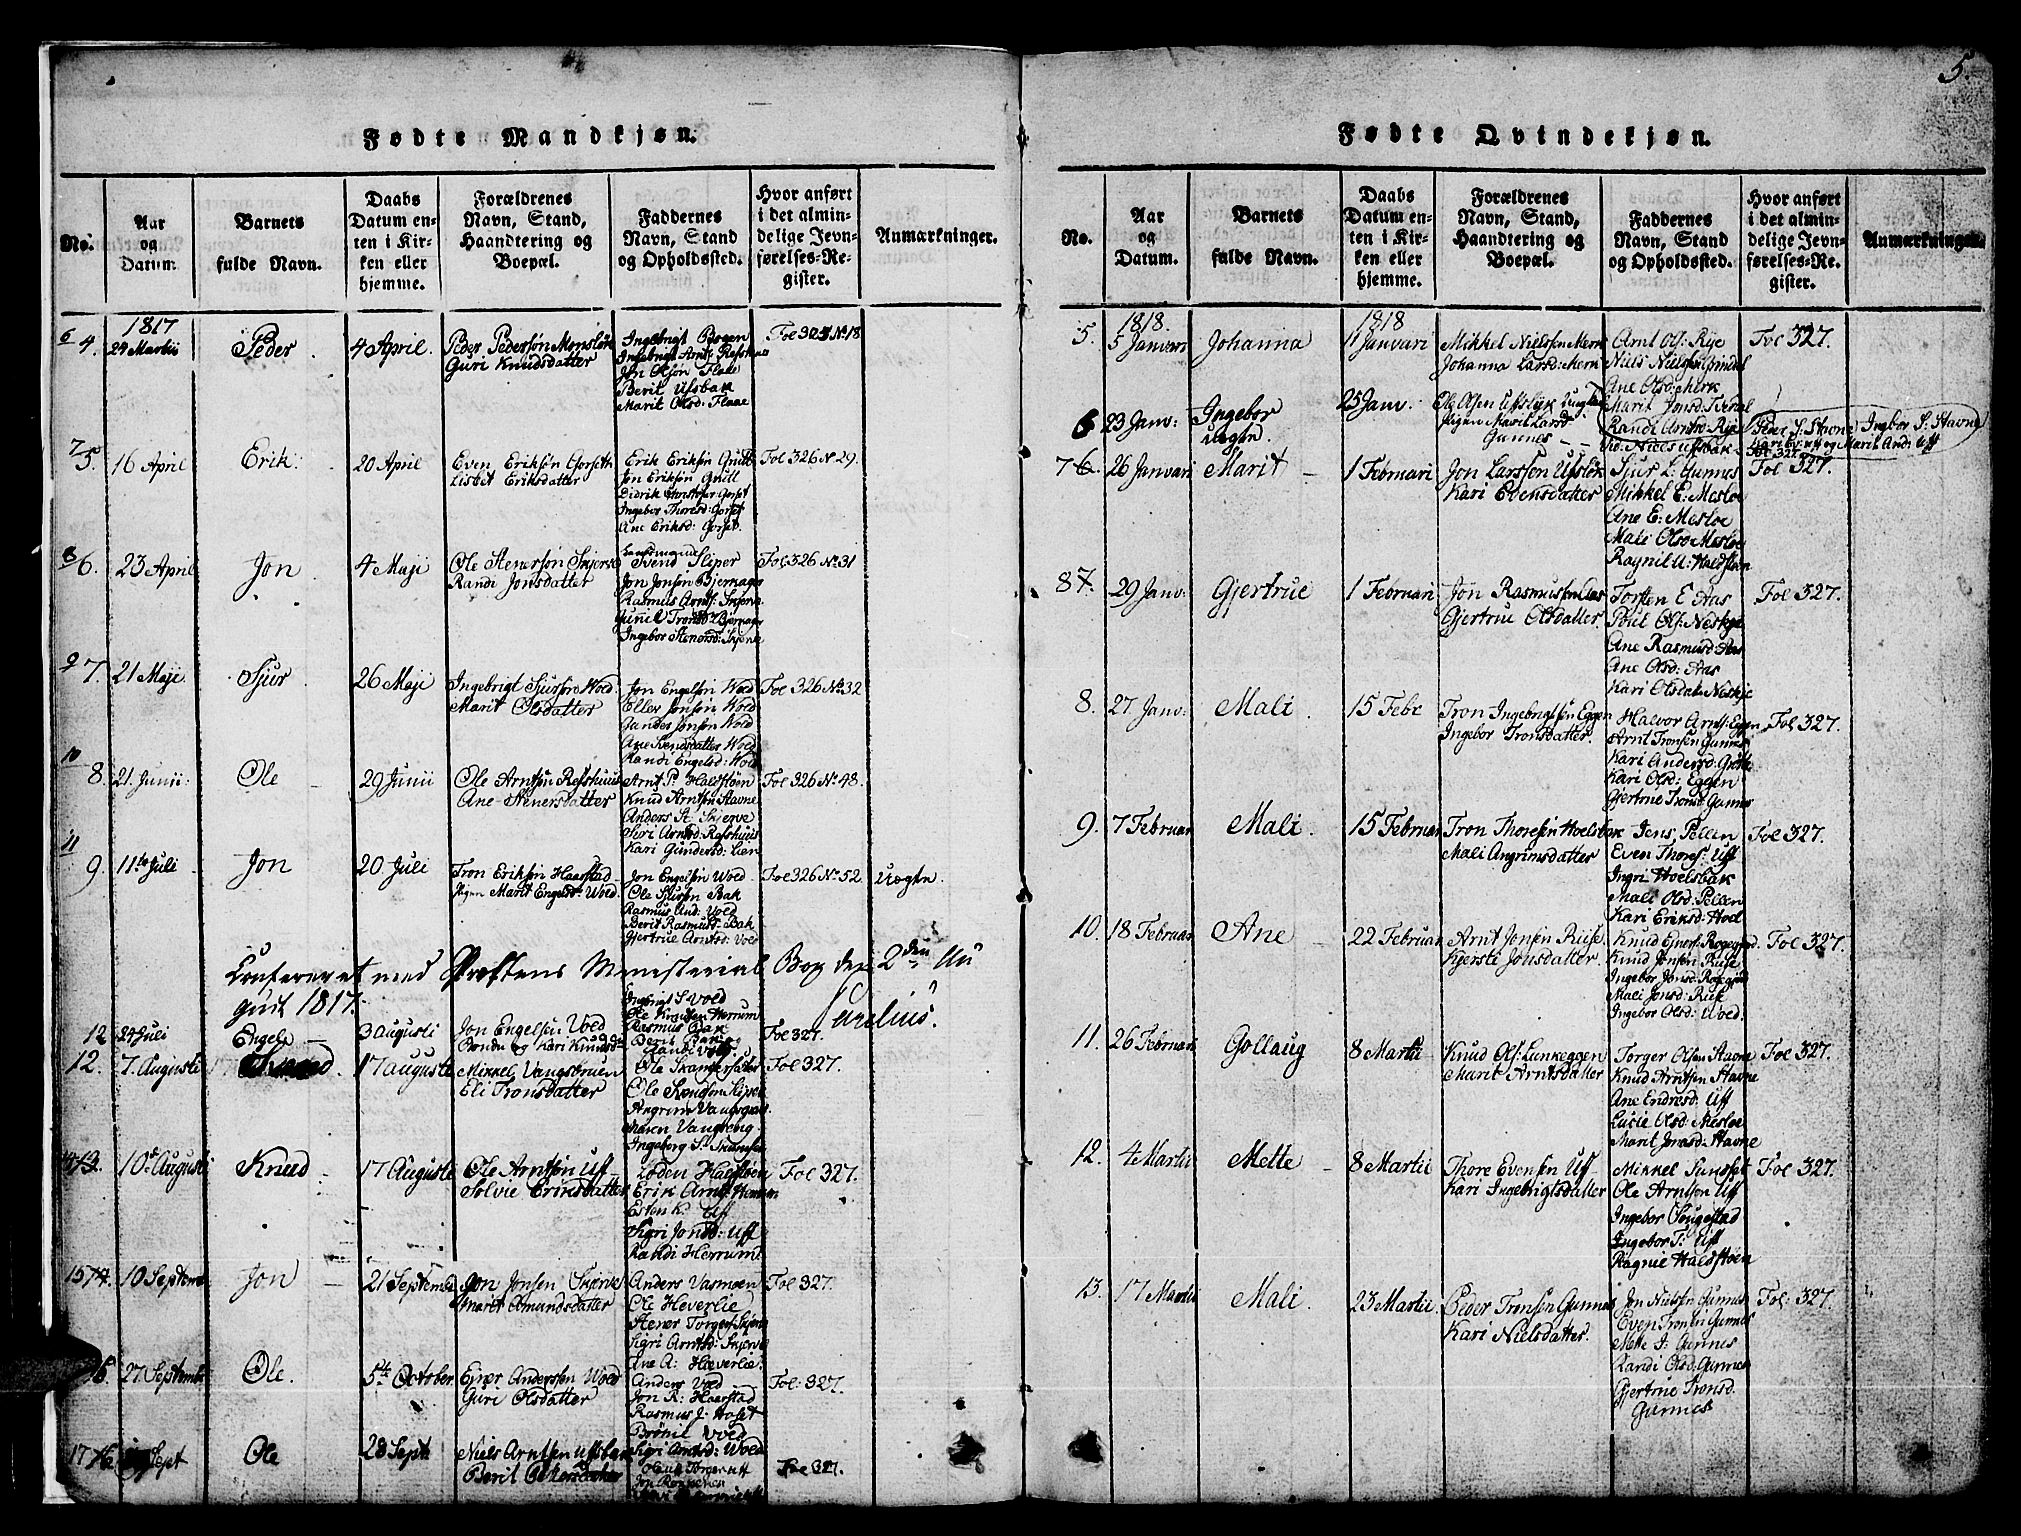 5.
Fødte Mandkjøn.
No.
Aar
og
Datum.
Barnets
fulde Navn.
Daabs
Datum en-
ten i Kir-
ken eller
hjemme.
Forældrenes
Navn, Stand,
Haandtering og
Boepæl.
Faddernes
Navn, Stand
og Opholdssted.
Hvor anført
i det almin-
delige Jevn-
førelses-Re-
gister.
Anmærkninger.
6 4.
1817
24 Martii
Peder
4 April.
Peder Pedersøn
Guri Knudsdatter
Ingebrigt Bogen
Jon Olsøn Flaae
Berit Ufsbak
Marit Olsd: Flaae
Fol 325 No 18
7 5
16 April
Erik
20 April
Even Eriksøn Gorseth
Lisbit Eriksdatter
Erik Eriksøn Quill
Jon Eriksøn Quill
Ingebor Thoresd: Gorset
Ane Eriksd: Gorset.
Fol 326 No 29.
8 6.
23 April
Jon
4 Maji
Ole Stenersøn Skjerve
Randi Jonsdatter
Svend Sliper
Jon Jonsøn Bjernager
Rasmus Arntss: Skjerve
Gunil Tronsd: Bjernager
Ingebor Stenersd: Skjerve
Fol 326 No 31
9 7.
21 Maji
Sjur
26 Maji
Ingebrigt Sjursøn Woed
Marit Olsdatter
Jon Engelsøn Woed
Eller Jonsøn Woed
Jonsøn Woed
Woed
Randi Engelsd: Woed
Fol 326 No 32
10 8.
21 Junii
Ole
29 Junii
Ole Arntsøn Refshuus
Ane Stenersdatter
Arnt P. Haldstøen
Knud Arntsøn Stavne
Anders St. Skjerve
Guri Arntsd: Refshuus
Kari Gundersd: Lien
Fol 326 No 48.
11 9.
11te Juli
Jon
20 Juli
Tron Eriksøn Haarstad
Pigen Marit Engelsd: Woed
Jon Engelsøn Woed
Ole Sjursøn Bak
Rasmus And: Voed
Berit Rasmusd: Bak
Gjertrue Arntsd: Voed
Fol 326 No 52.
uægte.
Confereret med Præstens Ministerial Bog den 2den Au
gust 1817.
12
24 Juli
Engel
3 Augusti
Jon Engelsen Voed
Kone og Kari Knudsd:
Ingbrigt S Voed
Ole Knudsen Horrum
Rasmus Bak
Berit Bak
Fol 327.
12.
7. Augusti
17 Auguste
Mikkel Vangsbruen
Eli Tronsdatter
Ole Skanger
Ole Knudsøn Sliper
Angrim Vaugsgaar
Maren Vangberg
Ingeborg
Fol 327.
14 13.
10de Augusti
Knud
17 Auguste
Ole Arntsøn Uff
Solvie Eriksdatter
Loden Haldstøen
Erik Arntss: Horrum
Esten K. Uff
Sigri Jonsd: Uff
Randi Horrum
Fol 327.
15 14.
10 Septemb:
Jon
21 Septembe
Jon Jonsen Skjerve
Marit Amundsdatter
Anders Vasmoen
Ole Heverlie
Stener Torgers: Skjerve
Sigri Arntsd: Skjerve
Ane A: Hæverlie
Fol 327.
27 Septembe
Ole.
5te October.
Ejner Anderssen Woed
Guri Olsdatter
Anders Voed
Jon R: Haarstad
Rasmus J. Hoset
Brønil Voed
Sigri Arntsd: Voed
Fol: 327.
17
Sept
Ole
28 Sept
Niels Arntsen Ufsbak
Berit Pedersdatter
Fol 327.
Fødte Qvindekjøn.
No.
Aar
og
Datum.
Barnets
fulde Navn.
Daabs
Datum en-
ten i Kir-
ken eller
hjemme.
Forældrenes
Navn, Stand,
Haandtering og
Boepæl.
Faddernes
Navn, Stand
og Opholdssted.
Hvor anført
i det almin-
delige Jevn-
førelses-Re-
gister.
Anmærkninger.
5.
1818.
5 Januari
Johanna
1818
Januari
Mikkel Nielssen Merk
Johanna Larsd: Merk
Arnt Ols: Rye
Niels Nielsen Grindal
Ane Olsd: Merk
Marit Jonsd: Tveral
Randi Arntsd: Rye
Fol 327.
6
23 Janv:
Ingebor
uægte.
25 Janv.
Ole Olsen Ufsløk Ungkarl
Pigen Marit Larsd
Gunnes
Vid: Niels Ufsbak
Peder S. Stavne Ingbor S: Stavne
Marit And: Uff
Fol 327.
7 6.
26 Januari
Marit
1 Februari
Jon Larssen Ufsløk
Kari Evensdatter
Sjur L. Gunnes
Mikkel E: Mesloe
Ane E: Mesloe
Mali Olsd: Mesloe
Ragnil A: Haldstøen
Fol 327.
8 7.
29 Janv:
Gjertrue
1 Februari
Jon Rasmussen Aas
Gjertrue Olsdatter.
Torsten E Aas
Poul Ols: Neskje
Ane Rasmusd: Aas
Ane Olsd: Aas
Kari Olsdat: Neskje
Fol 327.
8.
27 Janv:
Mali
15 Febr
Tron Ingebrigtsen Eggen
Ingebor Tronsdatter.
Halvor Arnts: Eggen
Arnt Tronsen Gunnes
Kari Andersd: Grøtte
Kari Olsd: Eggen
Gjertrue Tronsd: Gunnes
Fol 327.
9.
7 Februar
Mali.
15 Februar
Tron Thoresen Hoelsbak
Mali Angrimsdatter
Jens Pellen
Even Thores: Uff
Ingri Hoelsbak
Mali Olsd: Pellen
Kari Eriksd: Hoel
Fol 327.
10.
18 Februar
Ane
22 Februar
Arnt Jonsen Riise
Kjersti Jonsdatter
Knud Ejners: Rogegjød
Knud Jonsen Riise
Ingebor Jonsd: Rogegjød
Mali Jonsd: Riise
Ingebor Olsd: Woed.
Fol 327.
11.
26 Februari
Gollaug
8 Martii
Knud Ols: Lunkeggen
Marit Arntsdatter
Torger Olsen Stavne
Knud Arntsen Stavne
Ane Endresd: Uff
Lucie Olsd: Mesloe
Marit Jonsd: Stavne
Fol 327.
12.
4 Martii
Mette
8 Martii
Thore Evensen Uff
Kari Ingebrigtsdatter
Mikkel Sundset
Ole Arntsen Uff
Ingebor Sougestad
Ingebor T: Uff
Ragnil Haldstøen
Fol 327.
13.
17 Martii
Mali.
23 Martii.
Peder Tronsen Gunnes
Kari Nielsdatter.
Jon Nielsen Gunnes
Even Tronsen Gunnes
Mette J: Gunnes
Randi Olsd: Gunnes
Gjertrue Tronsd.
Gunnes
Fol: 327.